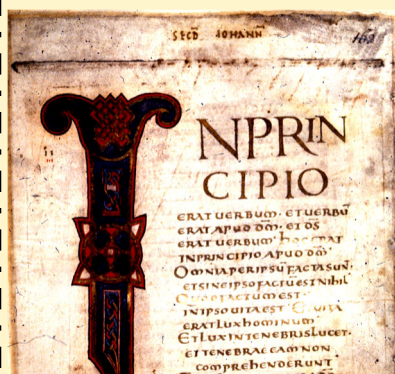 SECD IOHANN
INPRIN
CIPIO
ERAT UERBUM · ET UERBŪ
ERAT APUD DM̄ · ET DS̄
ERAT UERBUM · hOC ERAT
IN PRINCIPIO APUD DM̄
OMNIA PER IPSŪ FACTA SUN̄
ET SINE IPSO FACTŪ EST NIhIL
QUOD FACTUM EST ·
IN IPSO UITA EST · ET UITA
ERAT LUX hOMINUM
ET LUX IN TENEBRIS LUCET ·
ET TENEBRAE EAM NON
COMPREhENDERUNT